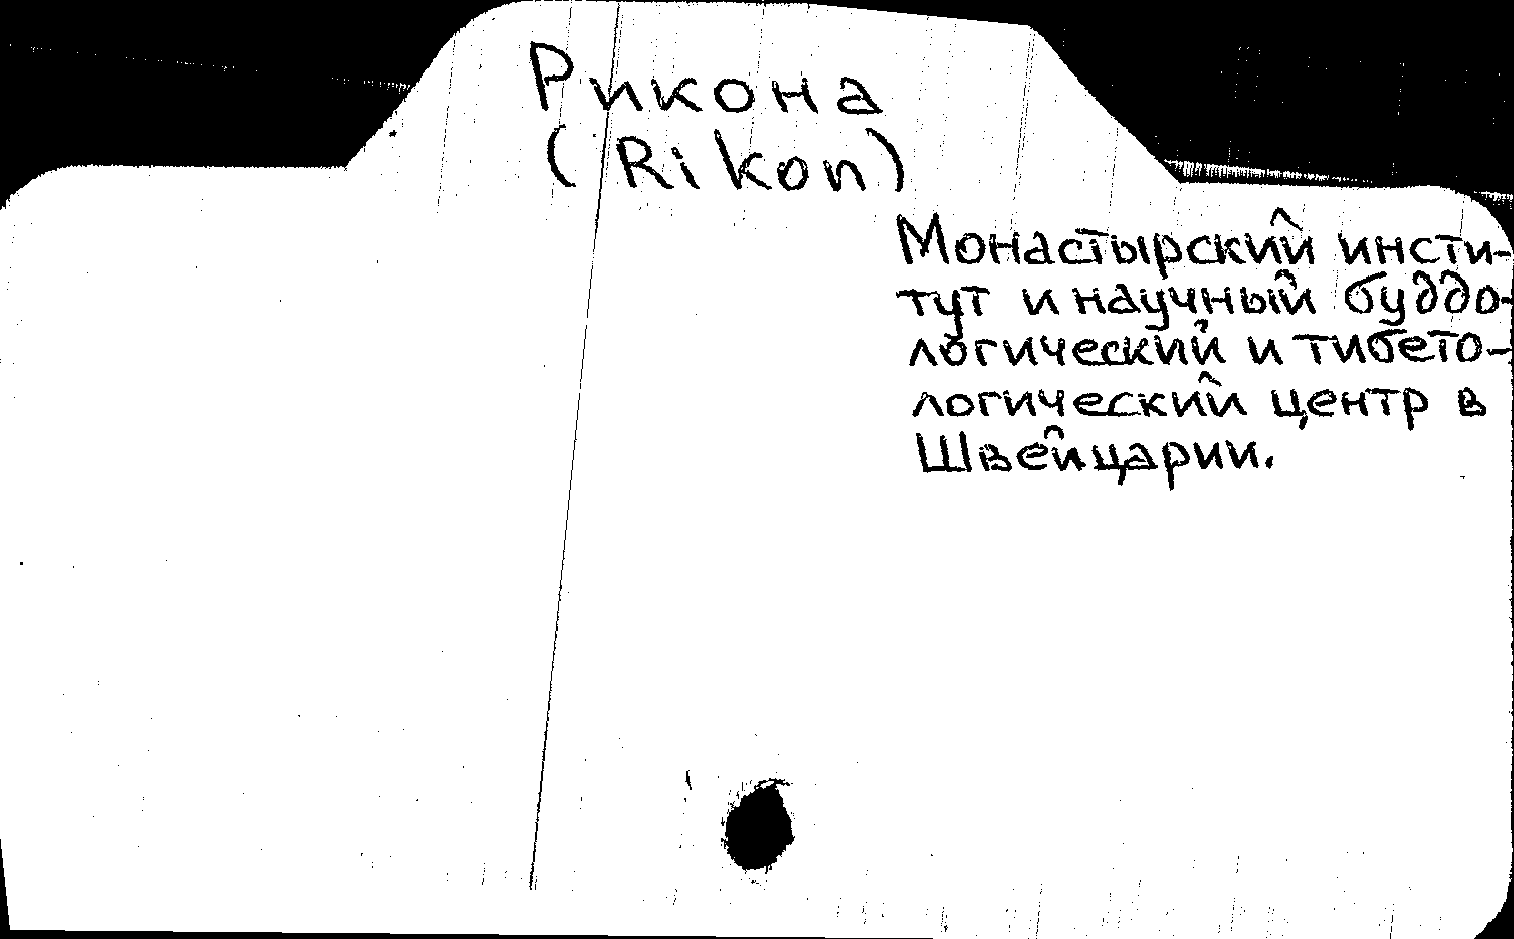 Рикона
(Rikon)
Монастырский инсти-
тут и научный буддо-
логический и тибето-
логический центр в
Швейцарии.